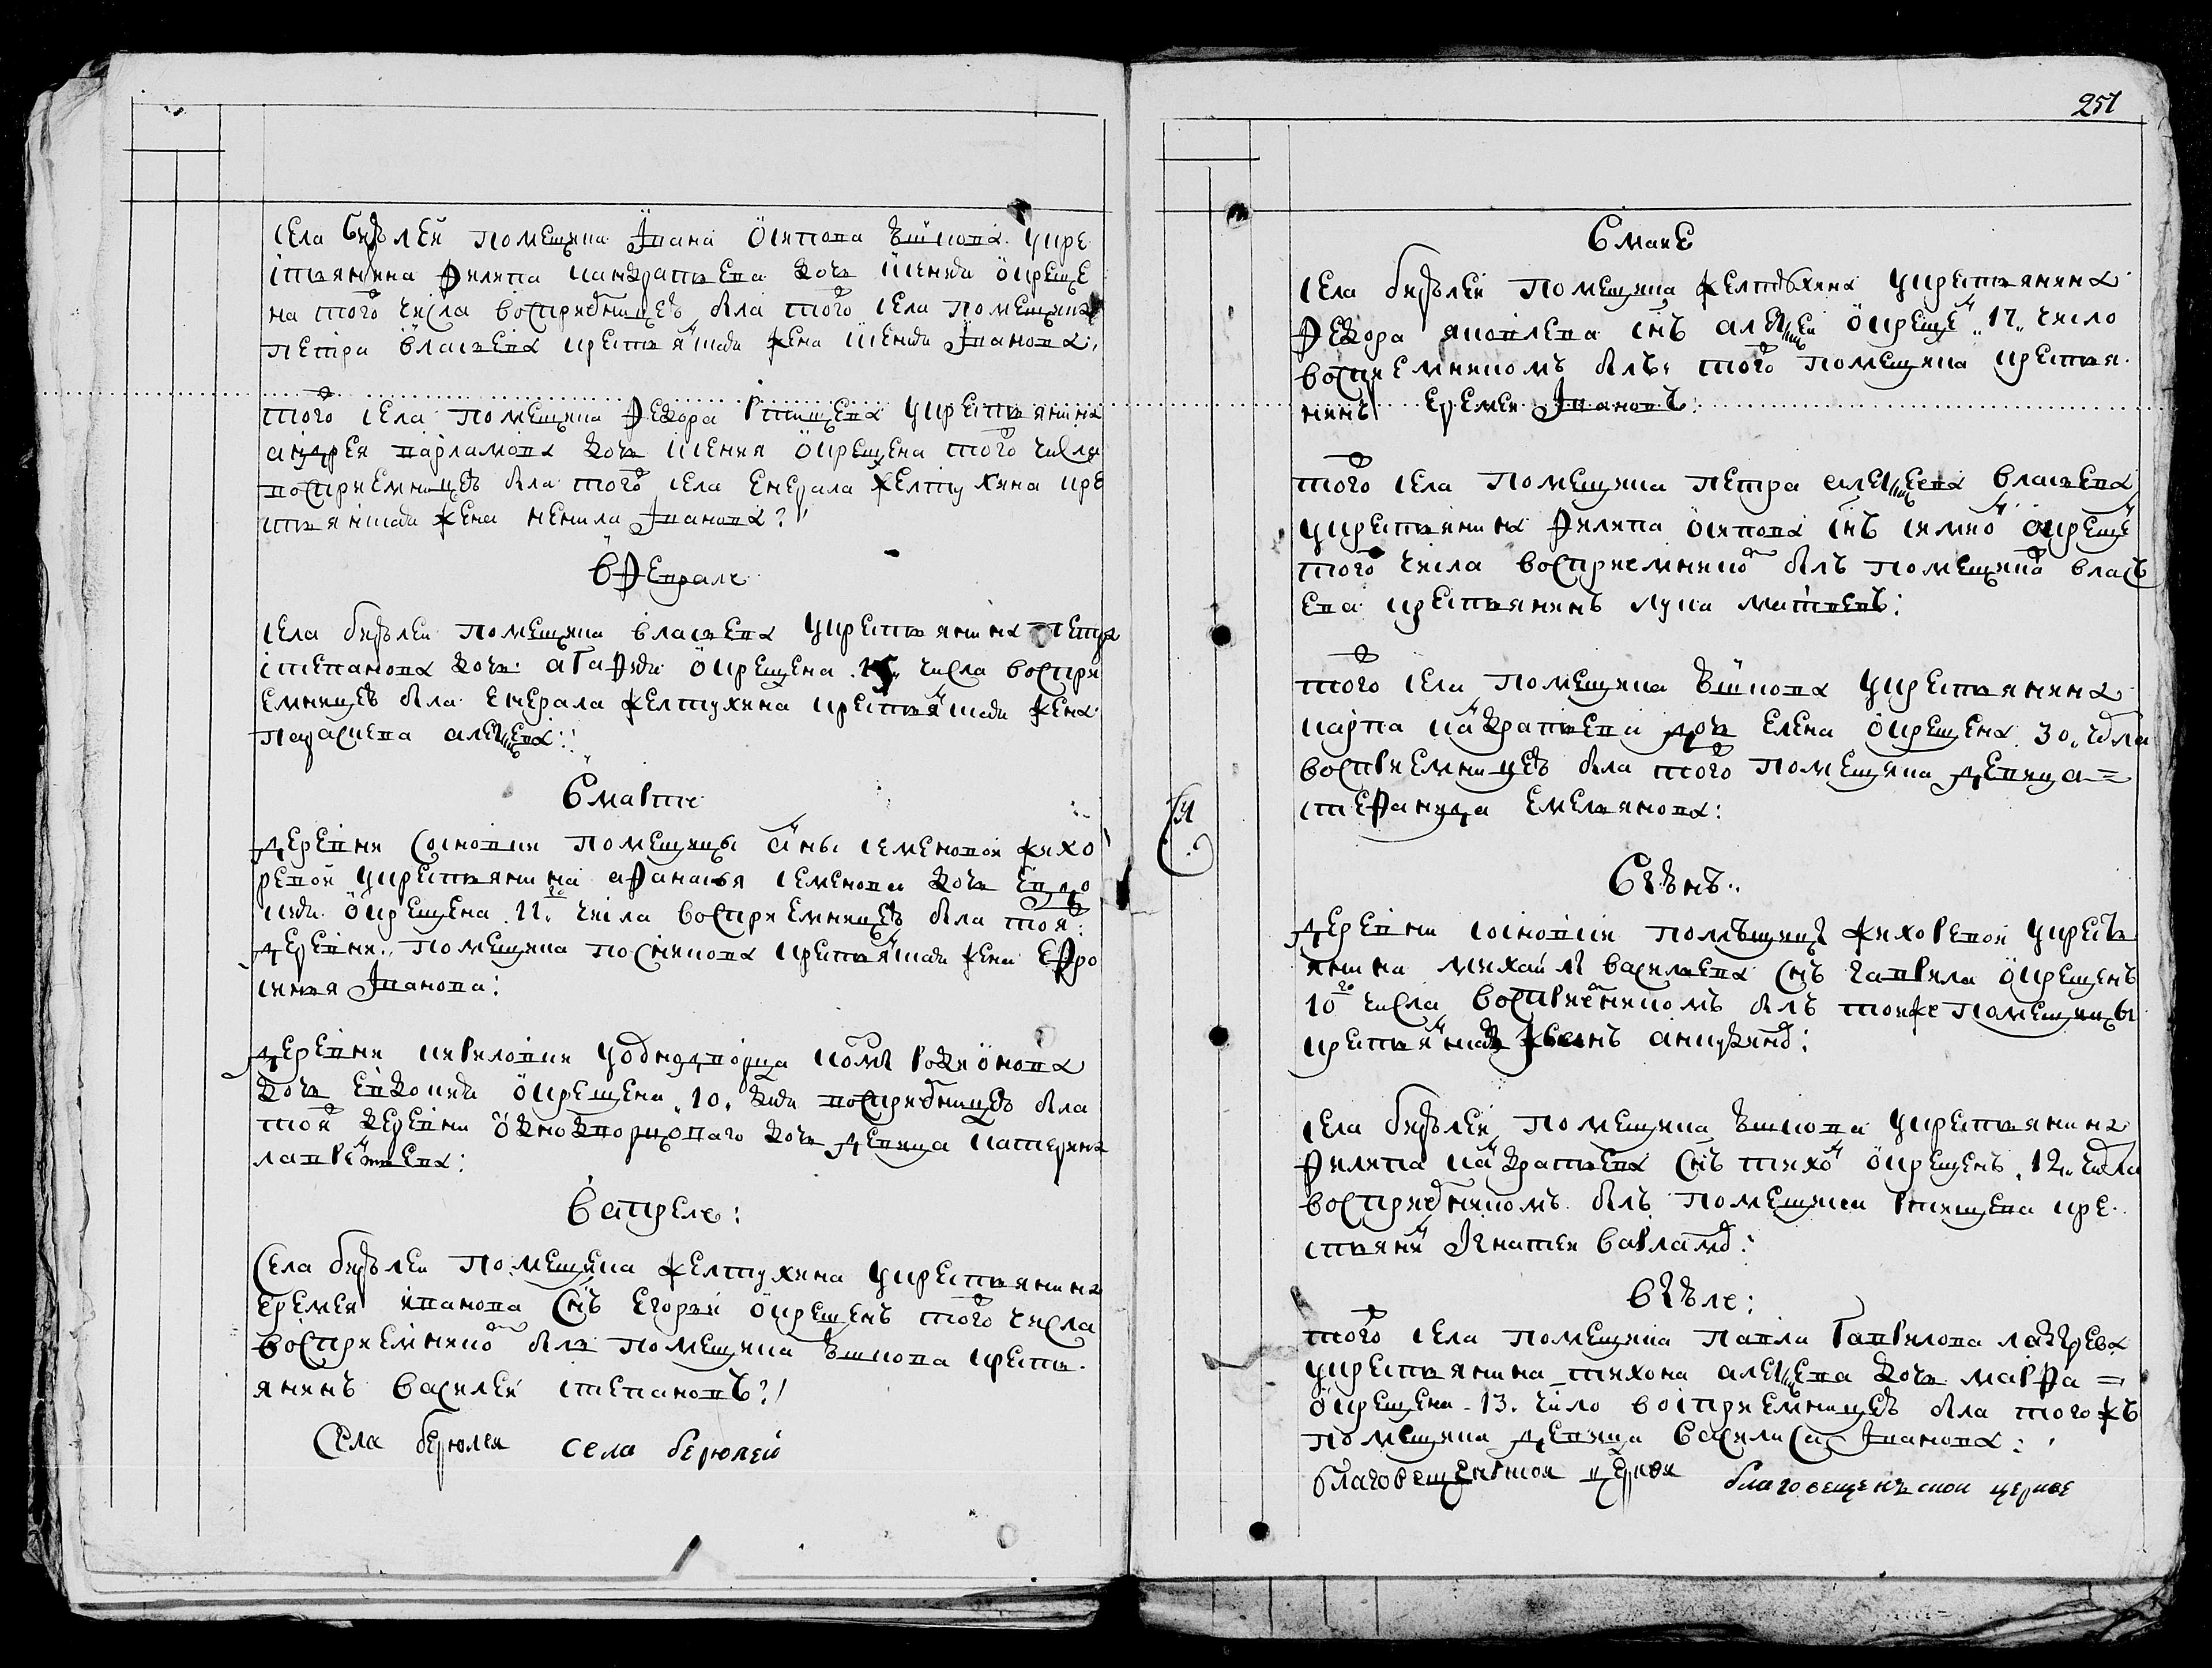 села Бирюлей помещика Ивана Осипова Юшкова у кре
стьянина Филипа Панкратьева дочь Ксения окреще
на того числа восприемницею была того села помещика
Петра Власьева крестьянская жена Ксения Иванова
того села помещика Федора Ртищева у крестьянина
Андрея Варламова дочь Ксения окрещена того числа
восприемницею была того села енерала Желтухина кре
стьянская жена Ненила Иванова
В феврале
села Бирюлей помещика Власьева у крестьянина Петра
Степанова дочь Агафия окрещена 15 числа воспри
емницею была енерала Желтухина крестьянская жена
Парасковя Алексеева
В марте
деревни Сосновки помещицы Аны Семеновой Жихо
ревой у крестьянина Афанасья Семенова дочь Евдо
кия окрещена 11го числа восприемницею была тоя
деревни помещика крестьянская жена Ефро
синья Иванова
деревни Кириловки у однодворца
дочь Евдокия окрещена 10 дня восприемницею была
тоя деревни однодворцоваго дочь девица Катерина
Лаврентьева
В апреле
Села Бирюлей помещика Желтухина у крестьянина
Еремея Иванова сын Егорей окрещенъ того числа
восприемникомъ былъ помещика Юшкова кресть
янинъ Василей Степановъ
Села берюлея села берюлей
251
В мае
села Бирюлей помещика Желтухина у крестьянина
Федора Яковлева снъ Алексей окрещен 17 число
восприемникомъ былъ того помещика крестья
нинъ Еремей Ивановъ
того села помещика Петра Алексеева Власьева
у крестьянина Филипа Осипова снъ Симион окрещен
того числа восприемником былъ помещика Влась
ева крестьянинъ Лука Матвевъ
того села помещика Юшкова у крестьянина
Карпа Панкратьева дочь Елена окрещена 30 числа
восприемницею была того помещика девица
Стефанида Емельянова
В июнъ
деревни Сосновки помѣщицы Жихоревой у кресть
янина Михаила Васильева снъ Гаврила окрещенъ
10го числа восприемникомъ былъ тоеже помещицы
крестьянинъ
села Бирюлей помещика Юшкова у крестьянина
Филипа Панкратьева снъ Тихон окрещенъ 12 числа
восприемникомъ былъ помещика Ртищева кре
стьянин Игнатей Варламов
В июле
того села помещика Павла Гаврилова Лазарева
у крестьянина Тихона Алексеева дочь Марфа
окрещена 13 число восприемницею была того жъ
помещика девица Василиса Иванова
благовещенской церкви благовещенъской церкве